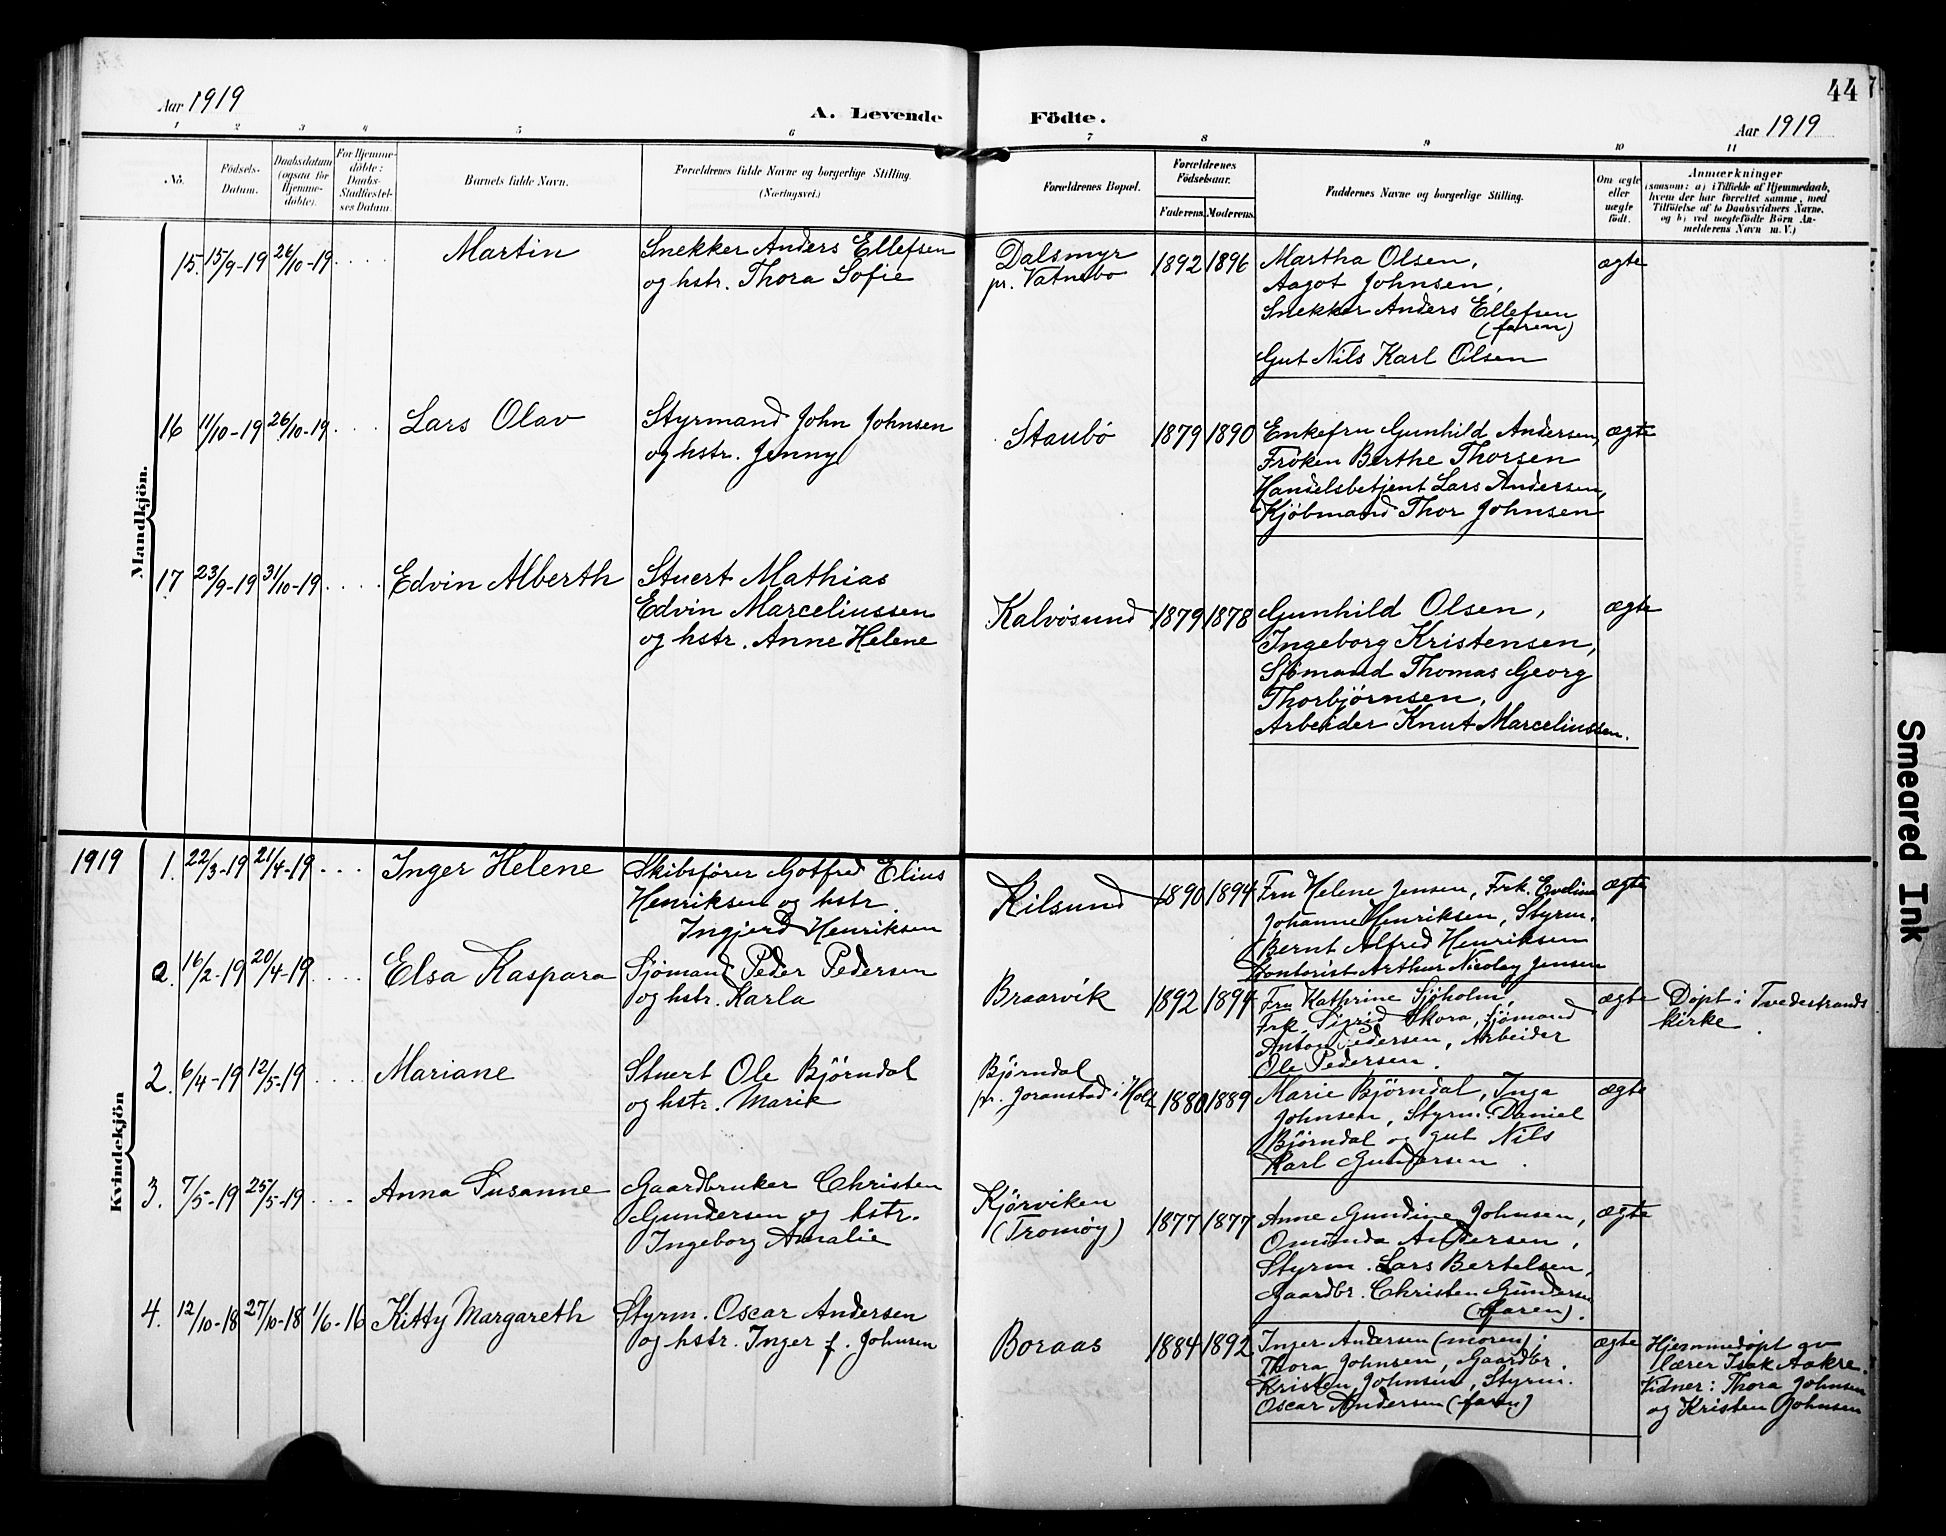 44
Aar 1919
A. Levende Födte.
Aar 1919
1 2 3 4 5 6 7 8 9 10 11
No.
Födsels-
Datum.
Daabsdatum
(ogsaa for
Hjemme-
döbte).
For Hjemme-
döbte:
Daabs-
Stadfæstel-
ses Datum.
Barnets fulde Navn.
Forældrenes fulde Navne og borgerlige Stilling.
(Næringsvei.)
Forældrenes Bopæl.
Forældrenes
Födselsaar.
Faderens. Moderens.
Faddernes Navne og borgerlige Stilling.
Om ægte
eller
uægte
födt.
Anmærkninger
(saasom: a) i Tilfælde af Hjemmedaab,
hvem der har forrettet samme, med
Tilföielse af to Daabsvidners Navne,
og b) ved uægtefödte Börn An-
melderens Navn m. V.)
Mandkjön.
15. 15/9-19 26/10-19 . . . . Martin
Snekker Anders Ellefsen
og hstr. Thora Sofie
Dalsmyr
pr. Vatnebo
1892 1896
Martha Olsen,
Aagot Johnsen,
Snekker Anders Ellefsen
(faren)
Gut Nils Karl Olsen
ægte
16 11/10-19 26/10-19 . . . . Lars Olav
Styrmand John Johnsen
og hstr. Jenny
Staubö
1879 1890
Enkefru Gunhild Andersen,
Fröken Berthe Thorsen
Handelsbetjent Lars Andersen,
Kjöbmand Thor Johnsen
ægte
17 23/9-19 31/10-19 . . . . Edvin Alberth
Stuert Mathias
Edvin Marceliussen
og hstr. Anne Helene
Kalvösund
1879 1878
Gunhild Olsen,
Ingeborg Kristensen,
Sjömand Thomas Georg
Thorbjörnsen,
Arbeider Knut Marceliussen.
ægte
1919
Kvindekjön
1. 22/3-19 21/4-19 . . . Inger Helene
Skibsförer Gotfred Elius
Henriksen og hstr.
Ingjerd Henriksen
Kilsund
1890 1894
Fru Helene Jensen, Frk. Evelina
Johanne Henriksen, Styrm.
Bernt Alfred Henriksen
Kontorist Arthur Nicolay Jensen
ægte
a. 16/2-19 20/4-19 . . . . Elsa Kaspara
Sjömand Peder Pedersen
og hstr. Karla
Braarvik
1892 1894
Fru Kathrine Sjöholm,
Frk. Sigrid Skora, Sjömand
Anton Pedersen, Arbeider
Ole Pedersen.
ægte
Döpt i Tvedestrands
kirke.
2. 6/4-19 12/5-19 . . . . Mariane
Stuert Ole Björndal
og hstr. Marie
Björndal
pr. Joranstad i Holt
1880 1889
Marie Björndal, Inga
Johnsen, Styrm. Daniel
Björndal og gut Nils
Karl Gundersen.
ægte
3. 7/5-19 25/5-19 . . . Anna Susanne
Gaardbruker Christen
Gundersen og hstr.
Ingeborg Amalie
Kjörviken
(Tromöy)
1877 1877
Anne Gundine Johnsen,
Omunda Andersen,
Styrm. Lars Bertelsen,
Gaardbr. Christen Gundersen
(faren).
ægte
4. 12/10-18 27/10-18 1/6-16 Kitty Margareth
Styrm. Oscar Andersen
og hstr. Inger f. Johnsen
Boraas
1884 1892
Inger Andersen (moren),
Thora Johnsen, Gaardbr.
Kristen Johnsen, Styrm.
Oscar Andersen (faren)
ægte
Hjemmedöpt av
lærer Isak Aakre.
Vidner: Thora Johnsen
og Kristen Johnsen
Smeared Ink